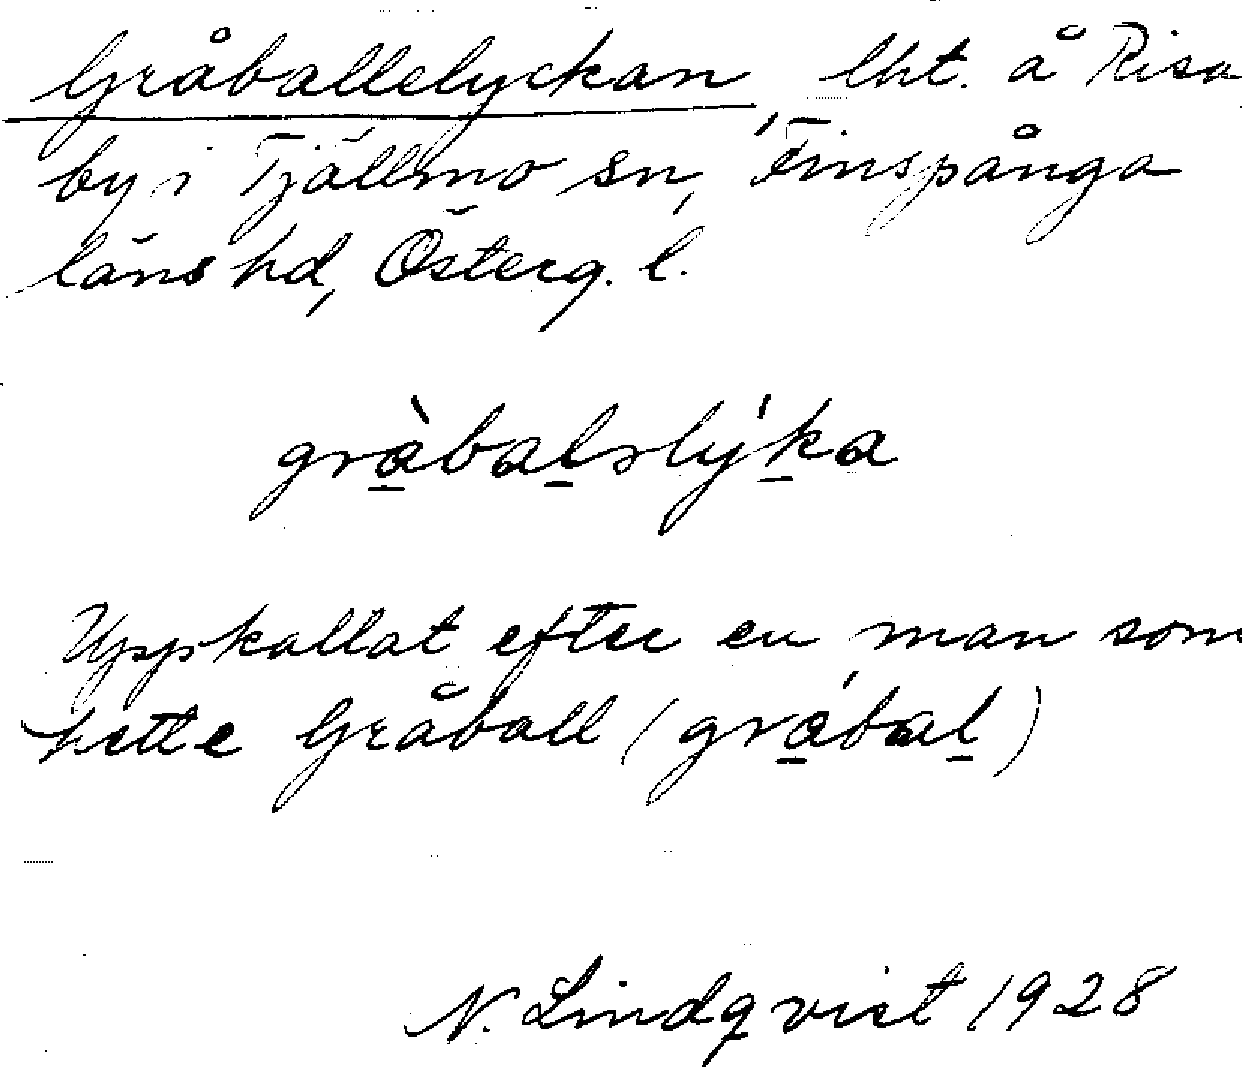 Gråballelyckan, lht. å Risa
by i Tjällmo sn, Finspånga
läns hd, Österg. l.
gràbalslýka
Uppkallat efter en man som
hette Gråball (grábal)
N. Lindqvist 1928